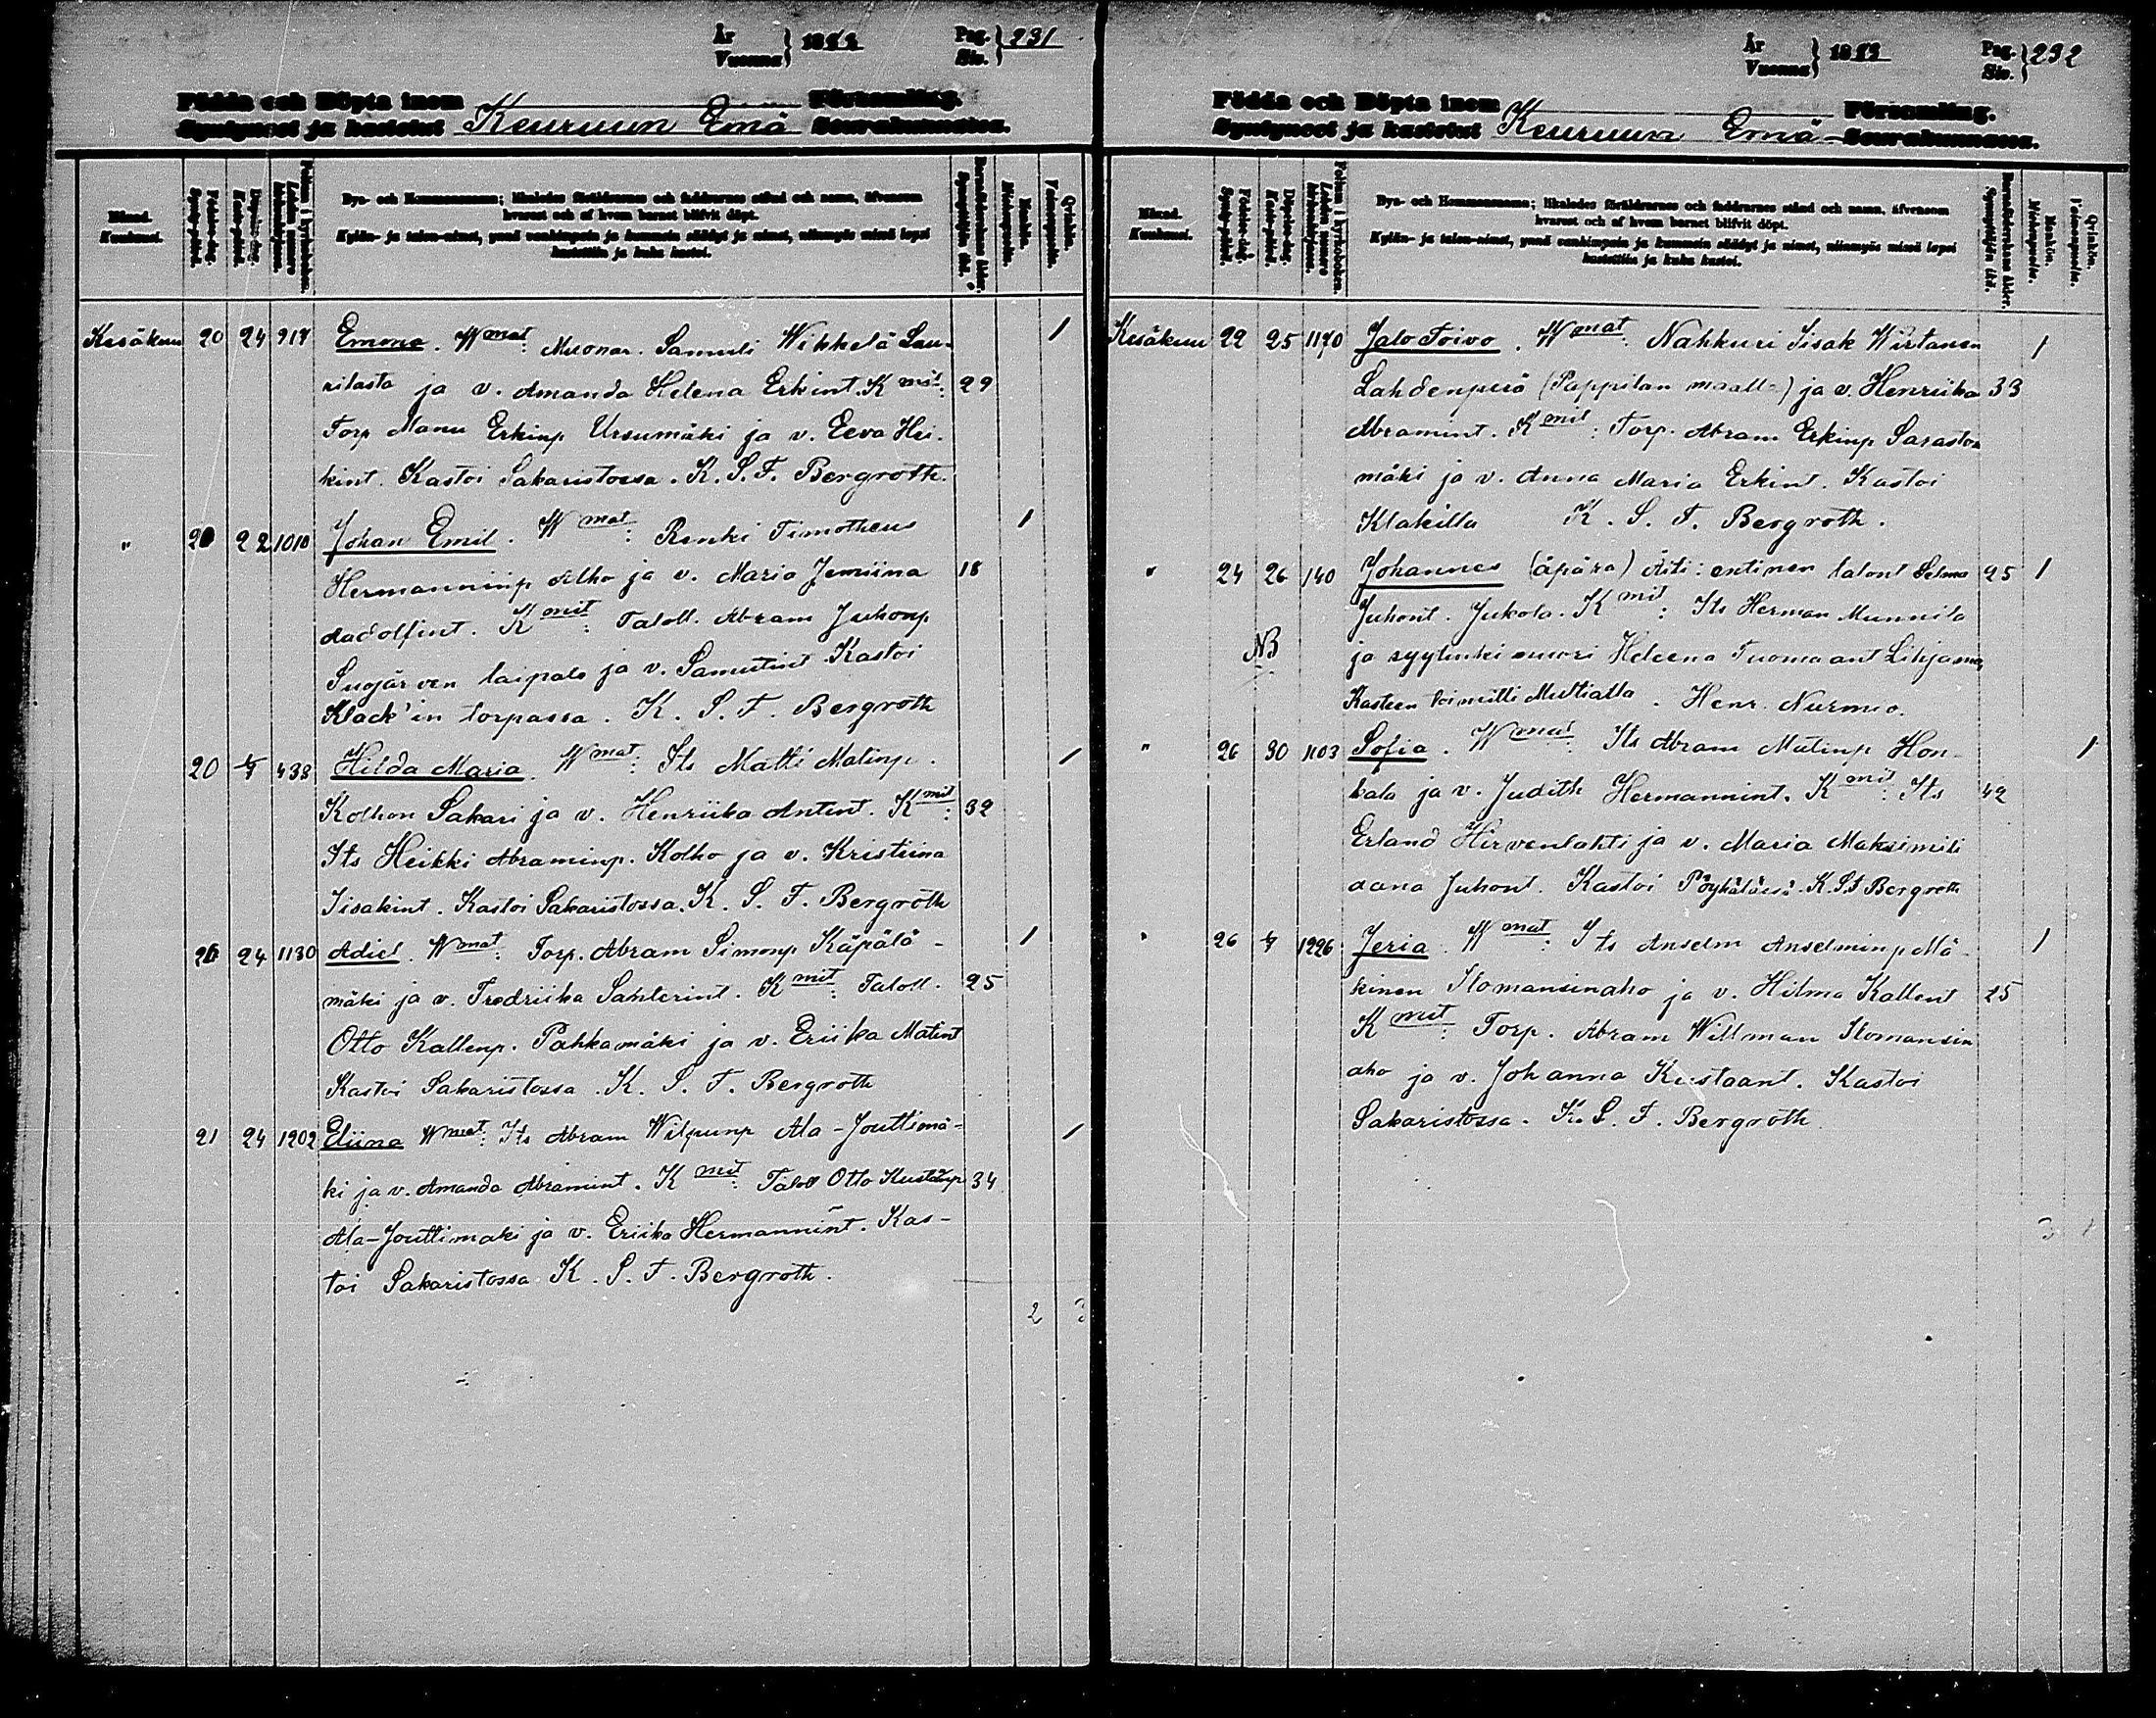 År
Vuonna } 1882 Pag.
Siv. } 231
Födda och Döpta inom Församling.
Syntyneet ja kastetut Keuruun Emä Seurakunnassa.
Månad. Kuukausi.
Födelse-dag. Synty-päivä.
Döpelse-dag. Kaste-päivä.
Folium i kyrkoboken. Lehden numero kirkonkirjassa.
Bya- och Hemmansnamn; likaledes föräldrarnes och faddrarnes stånd och namn, äfvensom
hvarest och af hvem barnet blifvit döpt.
Kylän- ja talon-nimet, ynnä vanhimpain ja kummein säädyt ja nimet, niinmyös missä lapsi
kastettiin ja kuka kastoi.
Barnaföderskans ålder. Synnyttäjän ikä.
Mankön. Miehenpuolta.
Qvinkön. Vaimonpuolta.
Kesäkuu 20 24 917 Emma. Wmat: Muonar. Samuli Wikkelä Lau- 1
rilasta ja v. Amanda Helena Erkint. Kmit: 29
Torp Manu Erkinp Ursumäki ja v. Eeva Hei-
kint. Kastoi Sakaristossa. K. S. F. Bergroth.
" 20 22 1010 Johan Emil. Wmat: Renki Timotheus 1
Hermanninp Alho ja v. Maria Jemiina 18
Aadolfint. Kmit: Taloll. Abram Juhonp
Suojärven laipale ja v. Samutint Kastoi
Klack'in torpassa. K. S. F. Bergroth
20 438 Hilda Maria. Wmat: Its Matti Matinp. 1
Kolhon Sakari ja v. Henriika Antint. Kmit: 32
Its Heikki Abraminp. Kolho ja v. Kristiina
Iisakint. Kastoi Sakaristossa. K. S. F. Bergroth
20 24 1130 Adiel. Wmat: Torp. Abram Simonp Käpälä- 1
mäki ja v. Fredriika Sahlerint. Kmit: Taloll. 25
Otto Kallenp. Pahkamäki ja v. Eriika Matint
Kastoi Sakaristossa. K. S. F. Bergroth
21 24 1202 Eliina Wmat: Its Abram Wilpunp Ala-Jouttimä- 1
ki ja v. Amanda Abramint. Kmit: Taloll Otto Kustaanp 34
Ala-Jouttimaki ja v. Eriika Hermannint. Kas-
toi Sakaristossa K. S. F. Bergroth.
2 3
År
Vuonna } 1882 Pag.
Siv. } 232
Födda och Döpta inom Församling.
Syntyneet ja kastetut Keuruun Emä- Seurakunnassa.
Månad. Kuukausi.
Födelse-dag. Synty-päivä.
Döpelse-dag. Kaste-päivä.
Folium i kyrkoboken. Lehden numero kirkonkirjassa.
Bya- och Hemmansnamn; likaledes föräldrarnes och faddrarnes stånd och namn, äfvensom
hvarest och af hvem barnet blifvit döpt.
Kylän- ja talon-nimet, ynnä vanhimpain ja kummein säädyt ja nimet, niinmyös missä lapsi
kastettiin ja kuka kastoi.
Barnaföderskans ålder. Synnyttäjän ikä.
Mankön. Miehenpuolta.
Qvinkön. Vaimonpuolta.
Kesäkuu 22 25 1170 Jalo Toivo. Wmat: Nahkuri Iisak Wirtanen 1
Lahdenperä (Pappilan maalla) ja v. Henriika 33
Abramint. Kmit: Torp. Abram Erkinp Sarasto-
mäki ja v. Anna Maria Erkint. Kastoi
Klakilla K. S. F. Bergroth.
" 24 26 140 Johannes (äpärä) Äiti: entinen talont Selma 25 1
Juhont. Jukola. Kmit: Its Herman Munnila
NB ja syytinki muori Heleena Tuomaant Lihjamo
Kasteen toimitti Multialla. Henr. Nurmio.
" 26 30 1103 Sofia. Wmat: Its Abram Matinp Hon- 1
kala ja v. Judith Hermannint. Kmit: Its 42
Erland Hirvenlahti ja v. Maria Maksimili
aana Juhont. Kastoi Pöyhölässä. K. S. F Bergroth
" 26 1226 Jeria. Wmat: Its Anselm Anselminp Mä- 1
kinen Ilomansinaho ja v. Hilma Kallent 25
Kmit: Torp. Abram Willman Ilomansin
aho ja v. Johanna Kustaant. Kastoi
Sakaristossa. K. S. F. Bergroth.
3 1